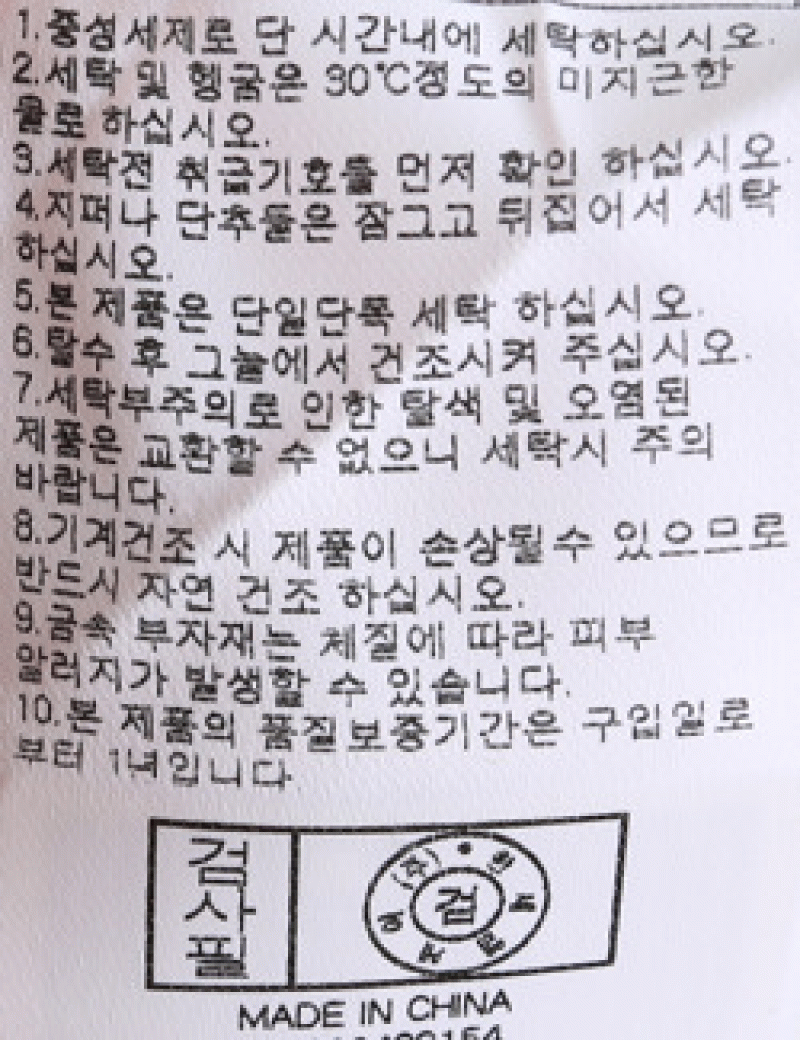 1.중성세제로 단 시간내에 세탁하십시오.
2.세탁 및 헹굼은 30℃정도의 미지근한
물로 하십시오.
3.세탁전 취급기호를 먼저 확인 하십시오.
4.지퍼나 단추들은 잠그고 뒤집어서 세탁
하십시오.
5.본 제품은 단일단독 세탁 하십시오.
6.탈수 후 그늘에서 건조시켜 주십시오.
7.세탁부주의로 인한 탈색 및 오염된
제품은 교환할 수 없으니 세탁시 주의
바랍니다.
8.기계건조 시 제품이 손상될수 있으므로
반드시 자연 건조 하십시오.
9.금속 부자재는 체질에 따라 피부
알러지가 발생할 수 있습니다.
10.본 제품의 품질보증기간은 구입일로
부터 1년입니다.
검
사
필
(주)
검
MADE IN CHINA